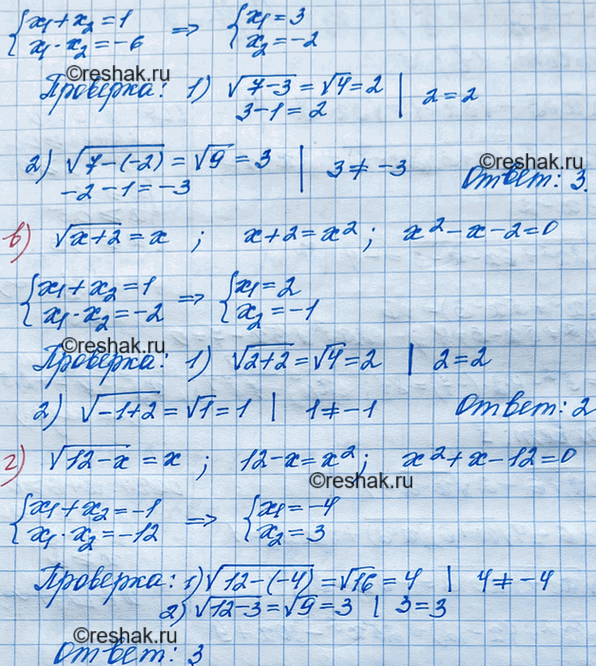 {x₁+x₂=1 => {x₁=3
x₁·x₂=-6 x₂=-2
©reshak.ru
Проверка: 1) √(7-3)=√4=2 | 2=2
3-1=2
©reshak.ru
2) √(7-(-2))=√9=3 | 3≠-3
-2-1=-3 Ответ: 3.
в) √(x+2)=x ; x+2=x²; x²-x-2=0
{x₁+x₂=1 => {x₁=2
x₁·x₂=-2 x₂=-1
©reshak.ru
Проверка: 1) √(2+2)=√4=2 | 2=2
2) √(-1+2)=√1=1 | 1≠-1 Ответ: 2
г) √(12-x)=x ; 12-x=x²; x²+x-12=0
©reshak.ru
{x₁+x₂=-1 => {x₁=-4
x₁·x₂=-12 x₂=3
Проверка: 1) √(12-(-4))=√16=4 | 4≠-4
2) √(12-3)=√9=3 | 3=3
©reshak.ru
Ответ: 3